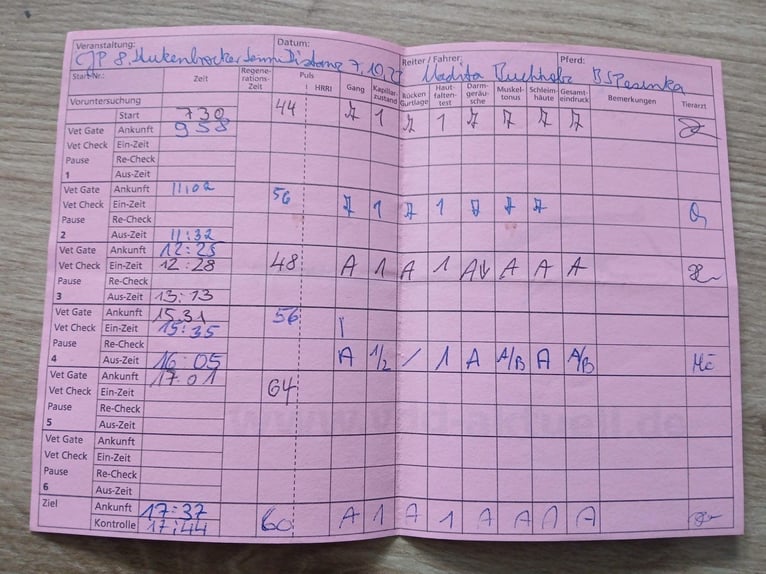 Veranstaltung: Datum: Reiter / Fahrer: Pferd:
Distanz 7.10. Buchholz
Start-Nr.: Zeit Regene- rations- Zeit Puls I HRRI Gang Kapillar- zustand Rücken Gurtlage Haut- falten- test Darm- geräu- sche Muskel- tonus Schleim- häute Gesamt- eindruck Bemerkungen Tierarzt
Voruntersuchung 44 1 1
Start 730
Vet Gate Ankunft 958
Vet Check Ein-Zeit
Pause Re-Check
1 Aus-Zeit
Vet Gate Ankunft 11:02 56
Vet Check Ein-Zeit 1 1
Pause Re-Check
2 Aus-Zeit 11:32
Vet Gate Ankunft 12:25
Vet Check Ein-Zeit 12:28 48 A 1 A 1 A↓ A A A
Pause Re-Check
3 Aus-Zeit 13:13
Vet Gate Ankunft 15 31 56
Vet Check Ein-Zeit 15:35
Pause Re-Check
4 Aus-Zeit 16:05 A 1/2 / 1 A A/B A A/B
Vet Gate Ankunft 17:01 64
Vet Check Ein-Zeit
Pause Re-Check
5 Aus-Zeit
Vet Gate Ankunft
Vet Check Ein-Zeit
Pause Re-Check
6 Aus-Zeit
Ziel Ankunft 17:37
Kontrolle 17:44 60 A 1 A 1 A A A A